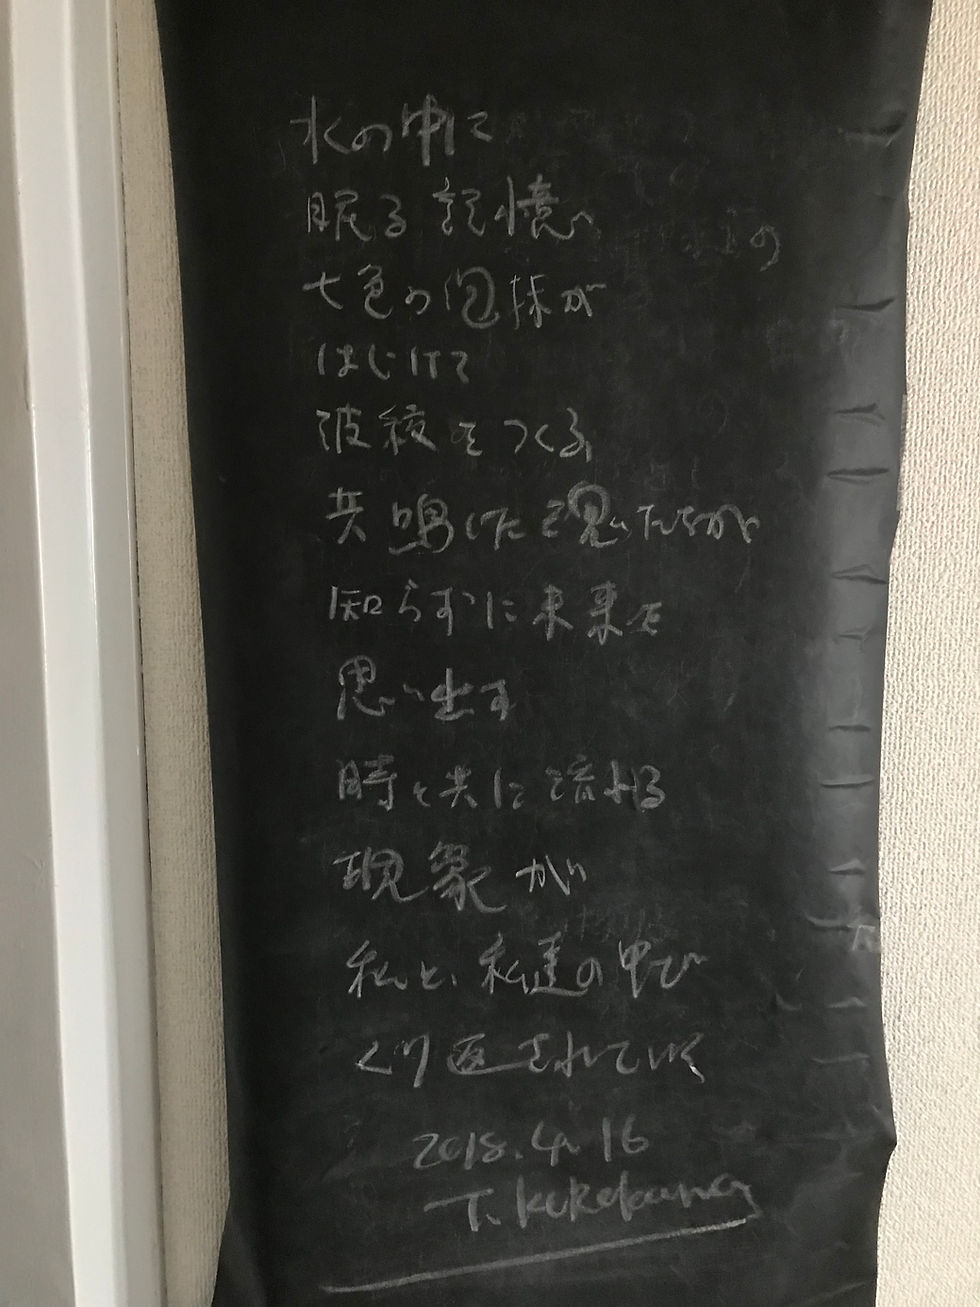 水の中に
眠る記憶へ
七色の泡抹が
はじけて
波紋をつくる
共鳴した魂たちが
知らずに未来を
思い出す
時と共に流れる
現象が
私と、私達の中で
くり返されていく
2018.4.16
T.